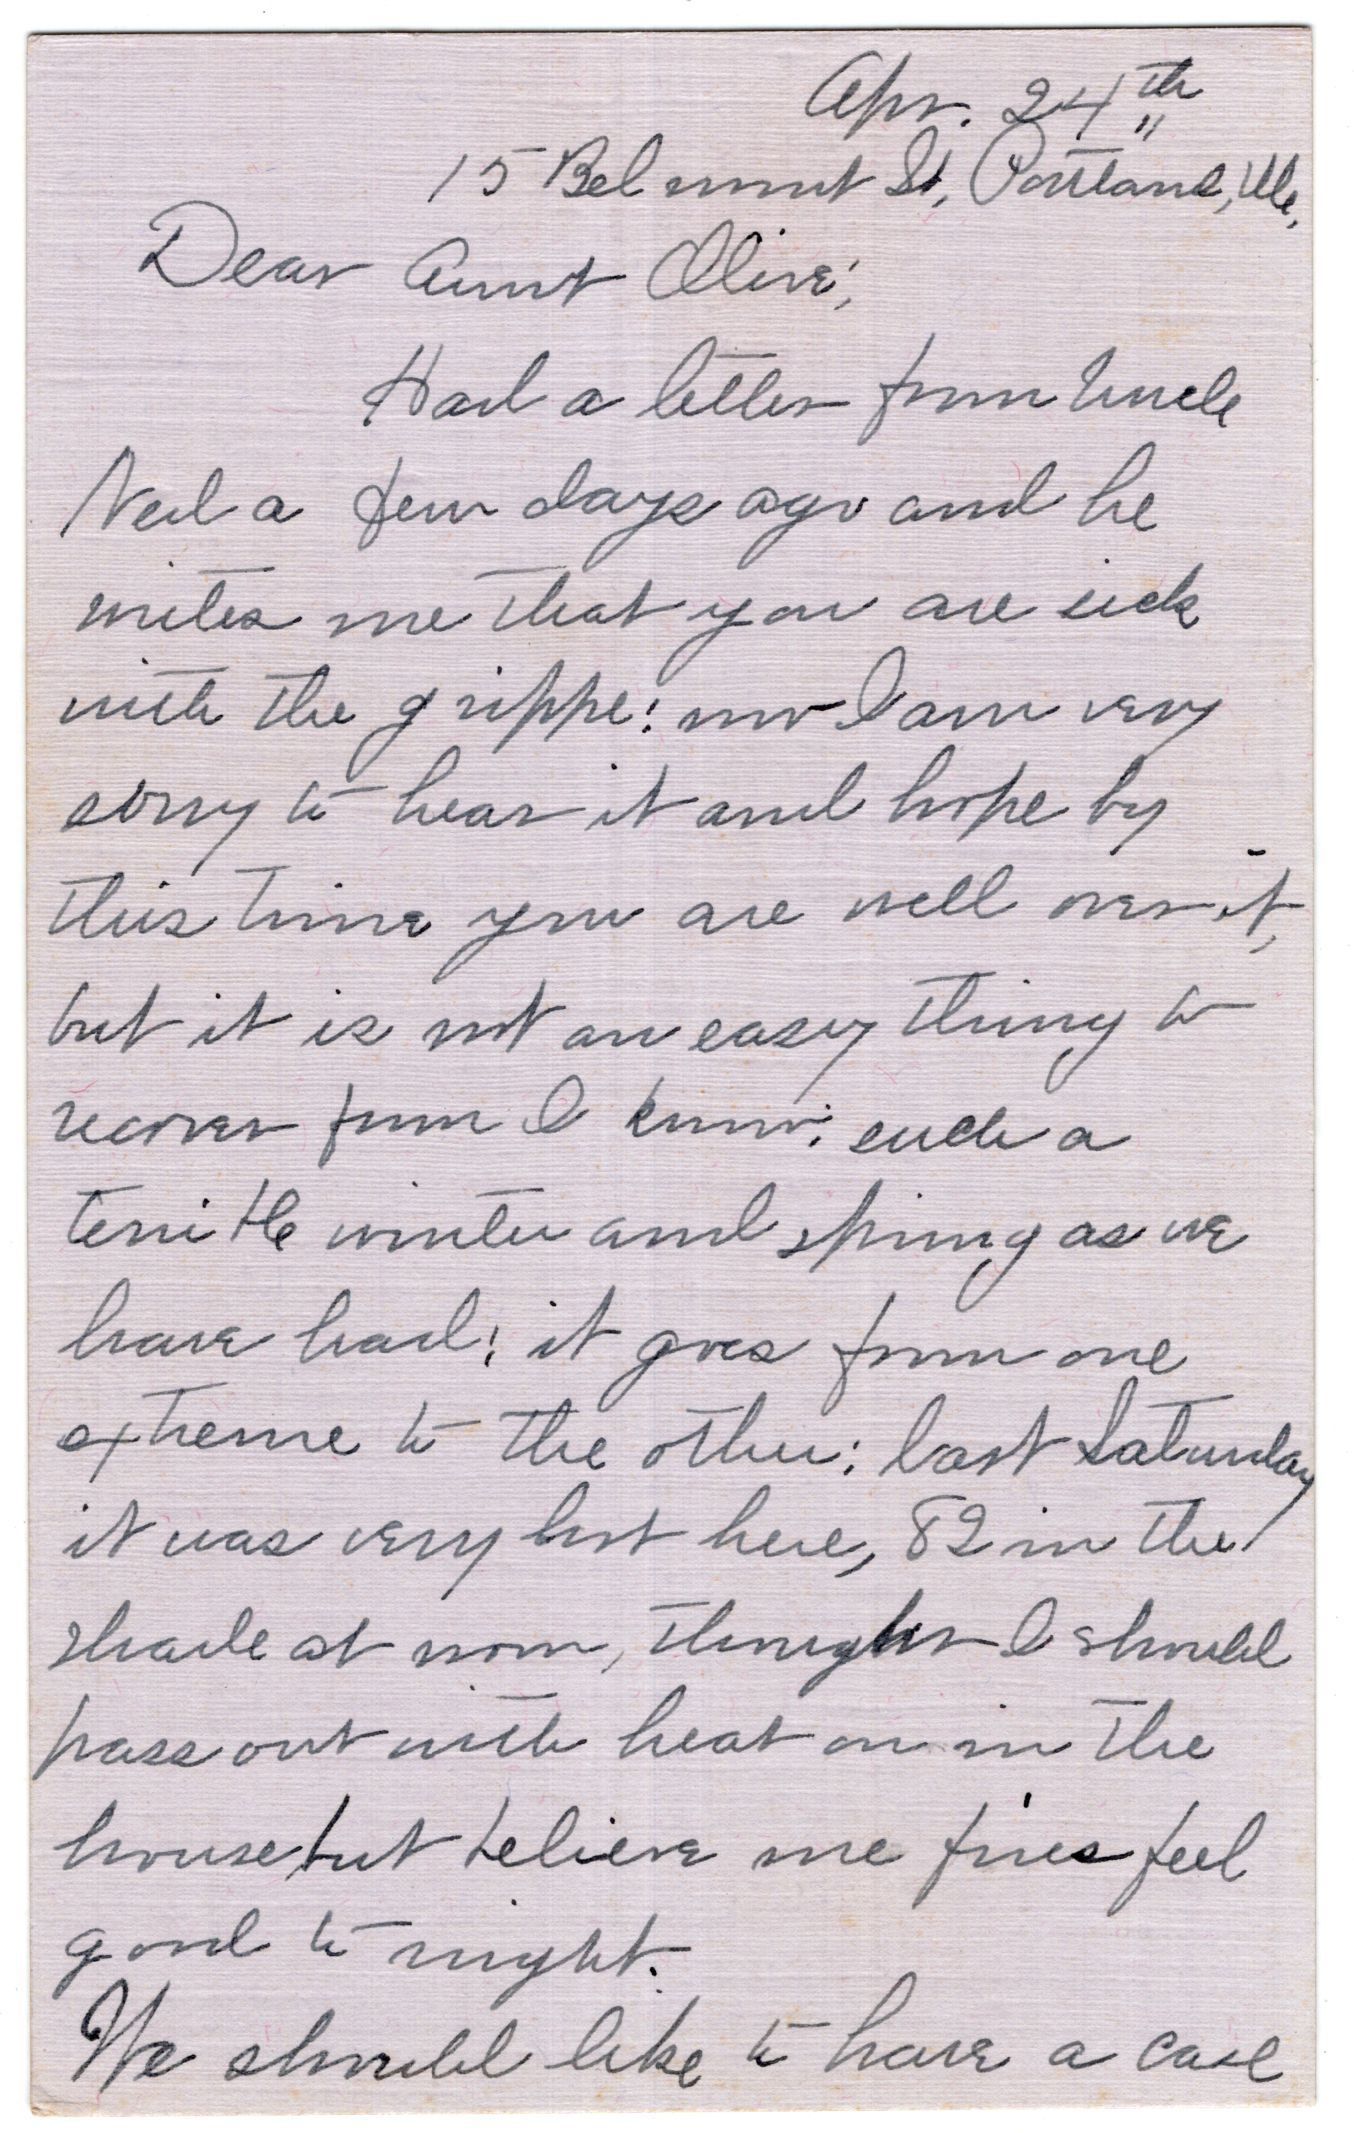 Apr. 24th
15 Belmont St, Portland, Me,
Dear Aunt Olive;
Had a letter from Uncle
Ned a few days ago and he
writes me that you are sick
with the grippe: now I am very
sorry to hear it and hope by
this time you are well over it,
but it is not an easy thing to
recover from I know: such a
terrible winter and spring as we
have had; it goes from one
extreme to the other: last Saturday
it was very hot here, 82 in the
shade at noon, thought I should
pass out with heat on in the
house but believe me fires feel
good to night.
We should like to have a case